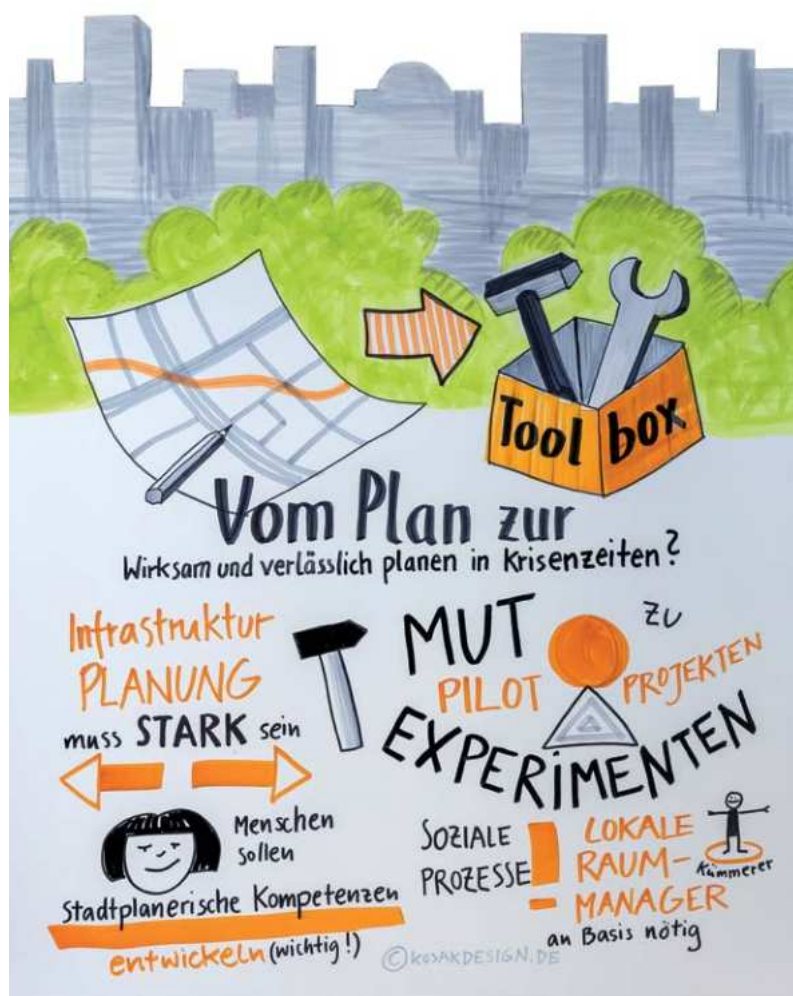 Tool box
Vom Plan zur
Wirksam und verlässlich planen in Krisenzeiten?
Infrastruktur
PLANUNG
muss STARK sein
MUT ZU
PILOT PROJEKTEN
EXPERIMENTEN
Menschen
sollen
Stadtplanerische Kompetenzen
entwickeln (wichtig!)
SOZIALE
PROZESSE
LOKALE
RAUM-
MANAGER
an Basis nötig
Kümmerer
©KOSAKDESIGN.DE